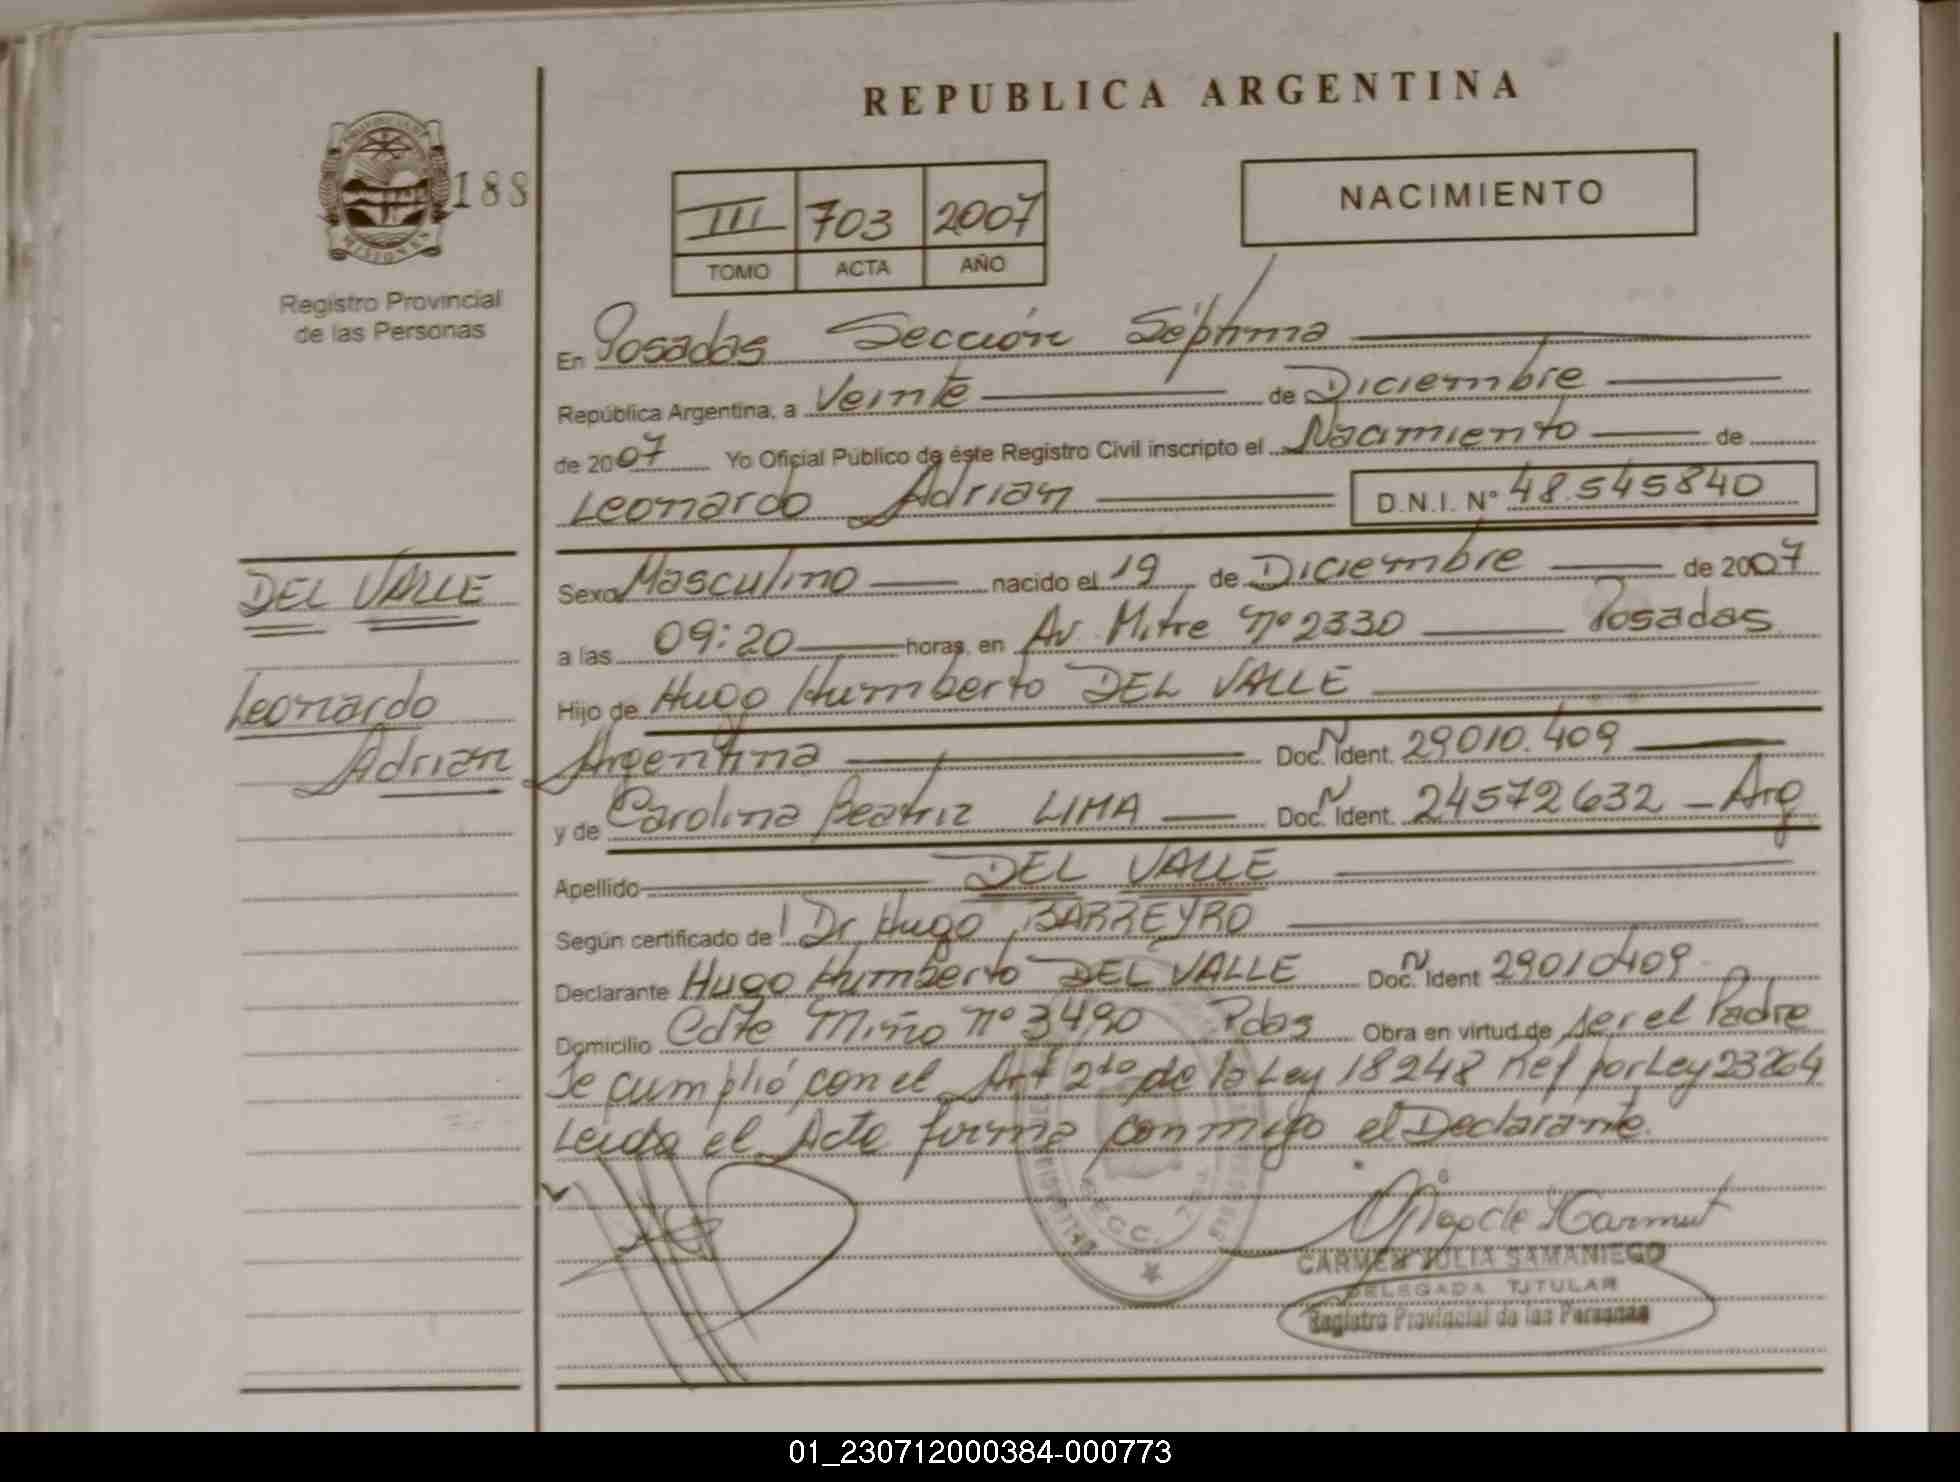 REPUBLICA ARGENTINA
188
III 703 2007
TOMO ACTA AÑO
NACIMIENTO
Registro Provincial
de las Personas
En Posadas Sección Séptima
República Argentina, a Veinte de Diciembre
de 2007 Yo Oficial Público de éste Registro Civil inscripto el Nacimiento de
Leonardo Adrian D.N.I. Nº 48.545840
DEL VALLE
Leonardo
Adrian
Sexo Masculino nacido el 19 de Diciembre de 2007
a las 09:20 horas, en Av. Mitre Nº 2330 Posadas
Hijo de Hugo Humberto DEL VALLE
Argentina Doc. Ident. 29010.409
y de Carolina Beatriz LIMA Doc. Ident. 24572632 - Arg
Apellido DEL VALLE
Según certificado de Dr. Hugo BARREYRO
Declarante Hugo Humberto DEL VALLE Doc. Ident 29010409
Domicilio Cdte Miño Nº 3490 Pdas Obra en virtud de ser el Padre
Se cumplió con el Art 2do de la Ley 18248 Ref por Ley 23264
Leida el Acta firma conmigo el Declarante.
SECC. 7
CARMEN JULIA SAMANIEGO
DELEGADA TITULAR
Registro Provincial de las Personas
01_230712000384-000773